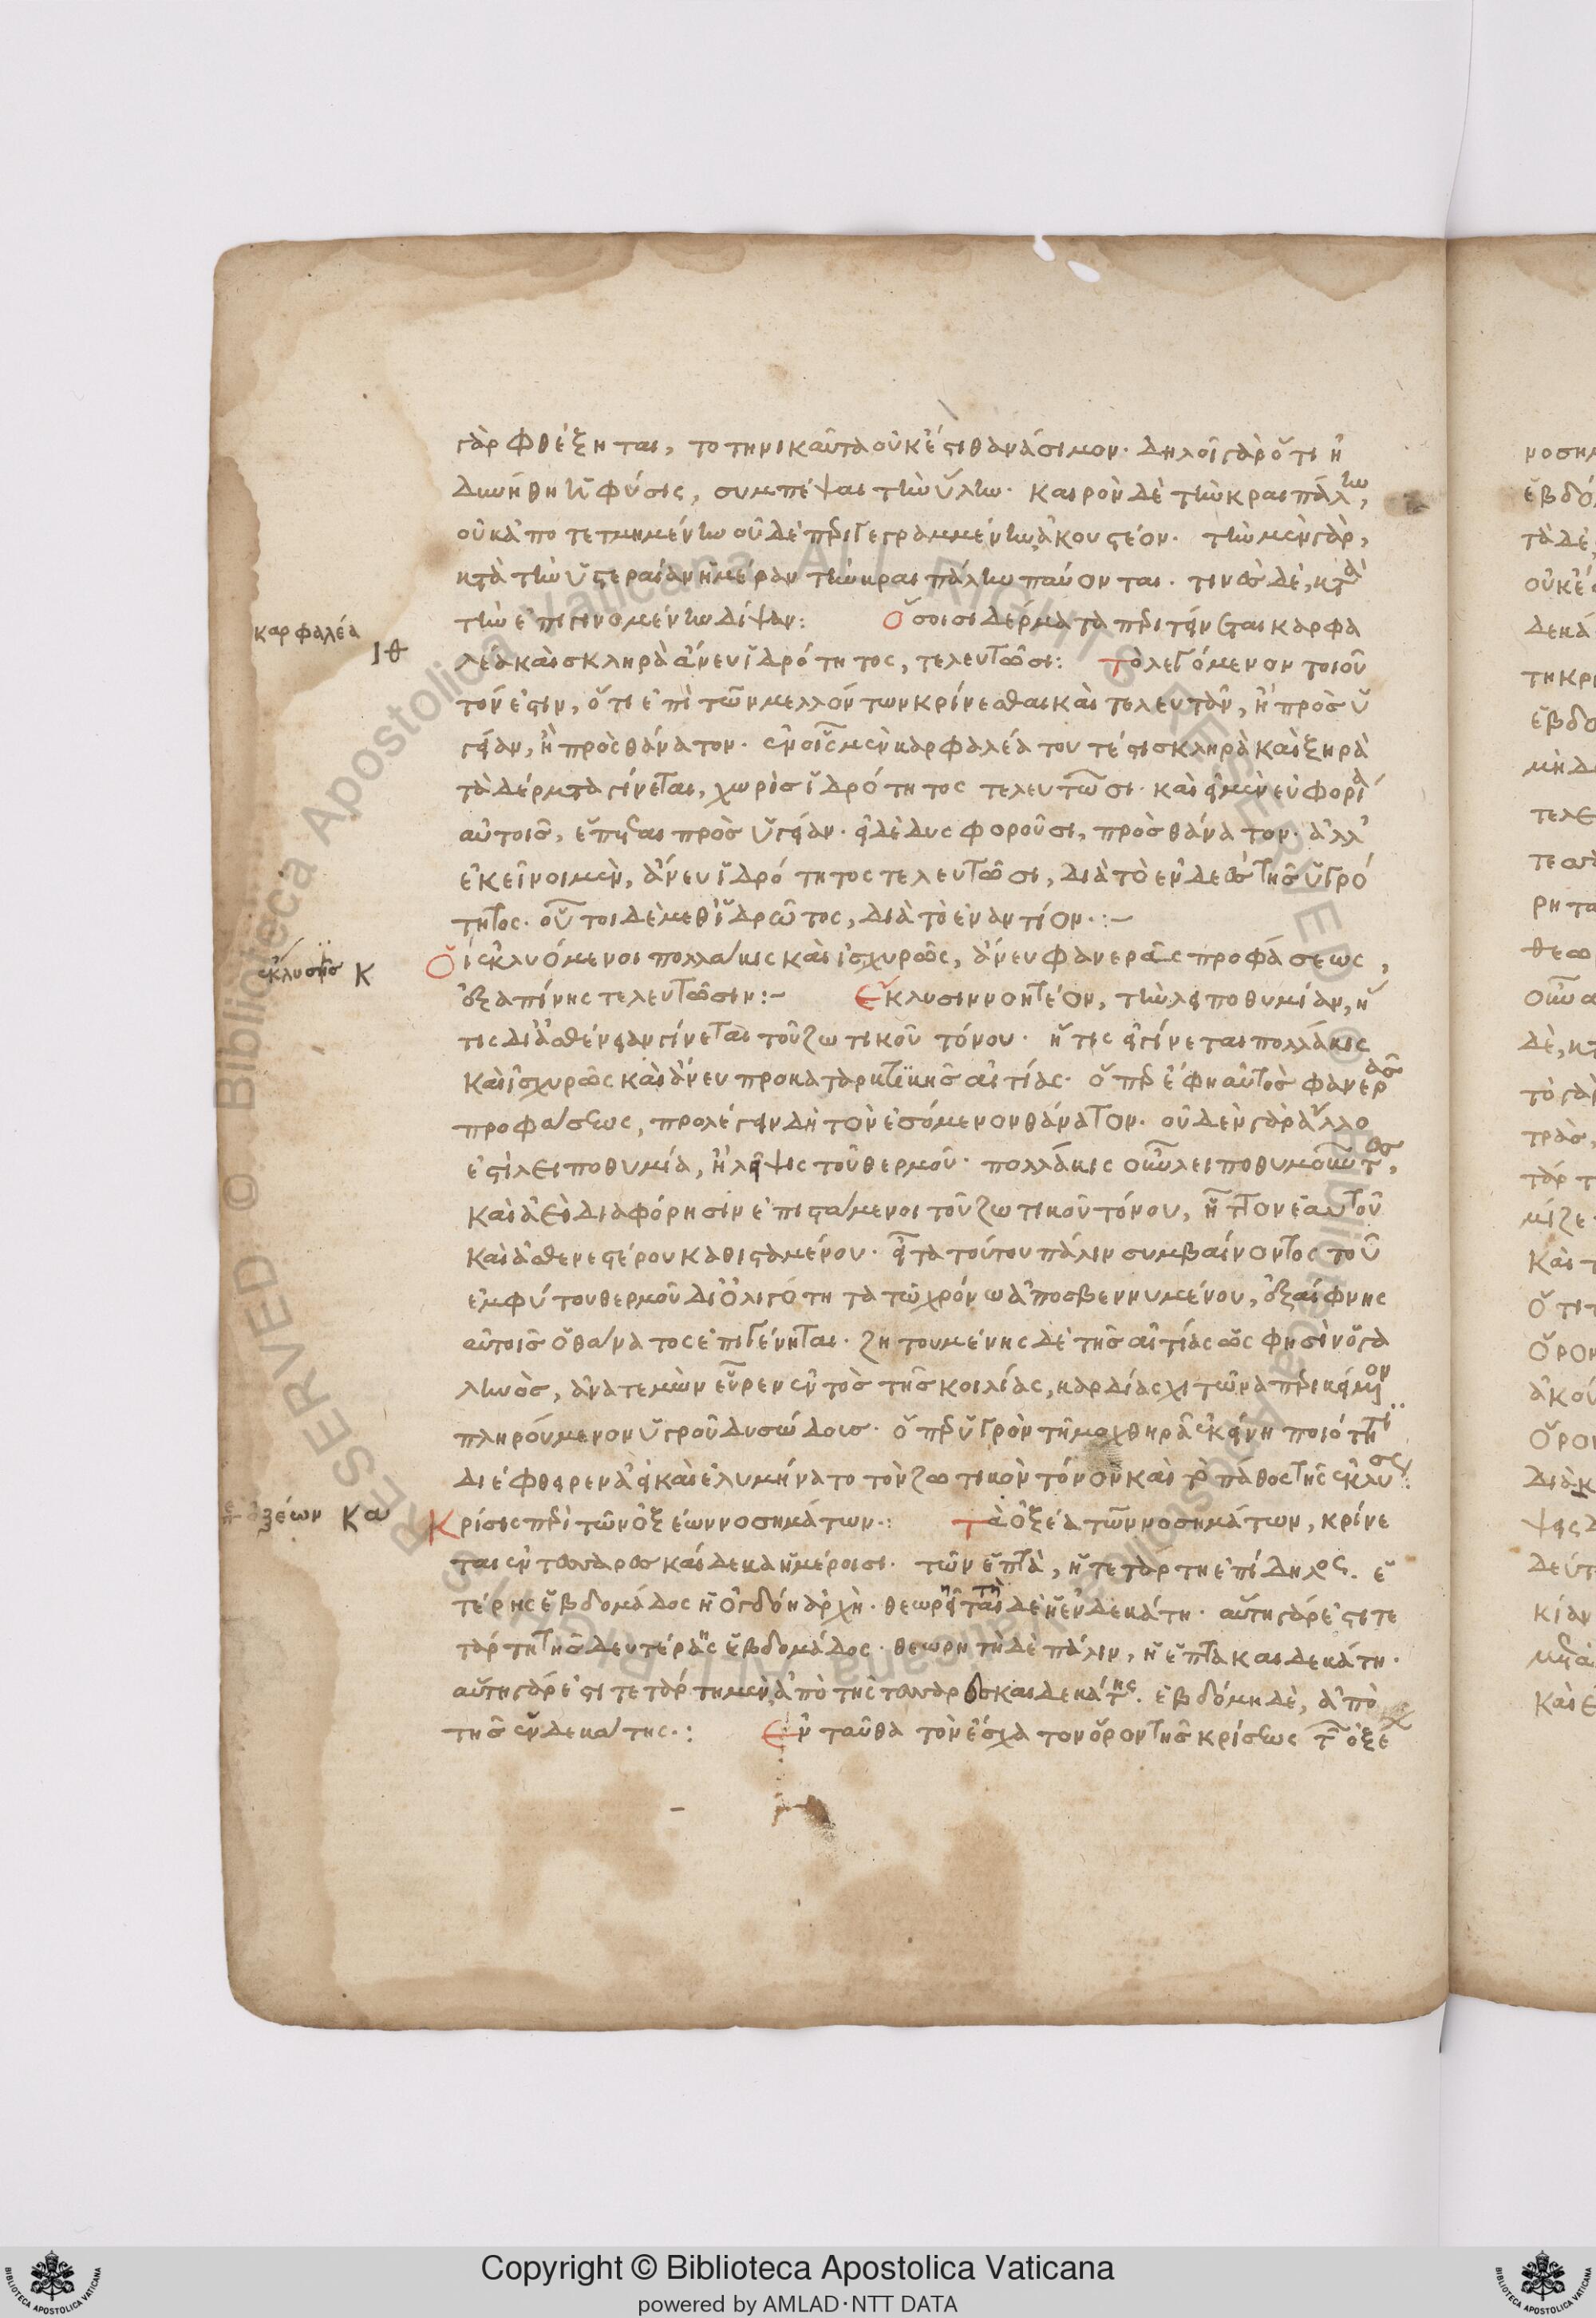 γὰρ φθέξηται, τὸ τηνικαῦτα οὐκ ἔστι θανάσιμον· δηλοῖ γὰρ ὅτι ἠ
δυνήθη ἡ φύσις, συμπέψαι τὴν ὕλην· καιρὸν δὲ τὴν κραιπάλην,
οὐκ ἀποτετμημένην οὐδὲ περιγεγραμμένην ἀκουστέον· τὴν μὲν γὰρ,
κατὰ τὴν ὑστεραίαν ἡμέραν τὴν κραιπάλην παύονται· τινὲς δὲ, κατὰ
τὴν ἐπιγινομένην δίψαν: Ὅσοισι δέρματα περιτείνεται καρφα
καρφαλέα ιθ
λέα καὶ σκληρὰ ἄνευ ἱδρότητος, τελευτῶσι: Τὸ λεγόμενον τοιοῦ
τόν ἐστιν, ὅτι ἐπὶ τῶν μελλόντων κρίνεσθαι καὶ τελευτᾶν, ἢ πρὸς ὑ
γείαν, ἢ πρὸς θάνατον· ἐν οἷς μὲν καρφαλέα τουτέστι σκληρὰ καὶ ξηρὰ
τὰ δέρματα γίνεται, χωρὶς ἱδρότητος τελευτῶσι· καὶ εἰ μὲν εὐφορία
αὐτοῖς, ἕπεται πρὸς ὑγείαν· εἰ δὲ δυσφοροῦσι, πρὸς θάνατον· ἀλλ'
ἐκεῖνοι μὲν, ἄνευ ἱδρότητος τελευτῶσι, διὰ τὸ ἐνδεὲς τῆς ὑγρό
τητος· οὗτοι δὲ μεθ' ἱδρῶτος, διὰ τὸ ἐναντίον·:-
ἔκλυσις κ
Οἱ ἐκλυόμενοι πολλάκις καὶ ἰσχυρῶς, ἄνευ φανερᾶς προφάσεως,
ἐξαπίνης τελευτῶσιν:- Ἔκλυσιν νοητέον, τὴν λειποθυμίαν, ἥ
τις δι' ἀσθένειαν γίνεται τοῦ ζωτικοῦ τόνου· ἥτις εἰ γίνεται πολλάκις
καὶ ἰσχυρῶς καὶ ἄνευ προκαταρκτικῆς αἰτίας· ὅπερ ἔφη αὐτὸς φανερᾶς
προφάσεως, προλέγειν δὴ τὸν ἐσόμενον θάνατον· οὐδὲν γὰρ ἄλλο
ἐστὶ λειποθυμία, ἢ λεῖψις τοῦ θερμοῦ· πολλάκις οὖν λειποθυμοῦντες,
καὶ ἀεὶ διαφόρησιν ἐπιστάμενοι τοῦ ζωτικοῦ τόνου, ἧττον ἑαυτοῦ
καὶ ἀσθενεστέρου καθισταμένου· εἶτα τούτου πάλιν συμβαίνοντος τοῦ
ἐμφύτου θερμοῦ δι' ὀλιγότητα τῷ χρόνῳ ἀποσβεννυμένου, ἐξαίφνης
αὐτοῖς ὁ θάνατος ἐπιγένηται· ζητουμένης δὲ τῆς αἰτίας ὥς φησὶν ὁ γα
ληνὸς, ἀνατεμὼν εὗρεν ἐντὸς τῆς κοιλίας, καρδίας χιτῶνα περικείμενον
πληρούμενον ὑγροῦ δυσώδους· ὅπερ ὑγρὸν τῇ μοχθηρᾷ ἐκείνῃ ποιότητι
διέφθειρεν ἀεὶ καὶ ἐλυμήνατο τὸν ζωτικὸν τόνον καὶ τὸ πάθος τῆς ἐκλύσεως:
ὀξέων κα
Κρίσις περὶ τῶν ὀξέων νοσημάτων·: Τὰ ὀξέα τῶν νοσημάτων, κρίνε
ται ἐν τεσσαρεσκαίδεκα ἡμέροισι· τῶν ἑπτὰ, ἡ τετάρτη ἐπίδηλος· ἑ
τέρης ἑβδομάδος ἡ ὀγδόη ἀρχὴ· θεωρητὴ δὲ ἡ ἑνδεκάτη· αὕτη γάρ ἐστι τε
τάρτη τῆς δευτέρας ἑβδομάδος· θεωρητὴ δὲ πάλιν, ἡ ἑπτακαιδεκάτη·
αὕτη γάρ ἐστι τετάρτη μὲν ἀπὸ τῆς τεσσαρεσκαιδεκάτης· ἑβδόμη δὲ, ἀπὸ
τῆς ἑνδεκάτης·: Ἐνταῦθα τὸν ἔσχατον ὅρον τῆς κρίσεως τῶν ὀξέ